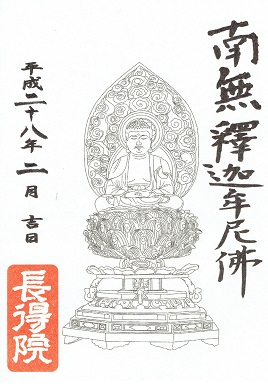 南無釋迦牟尼佛
平成二十八年二月吉日
長得院